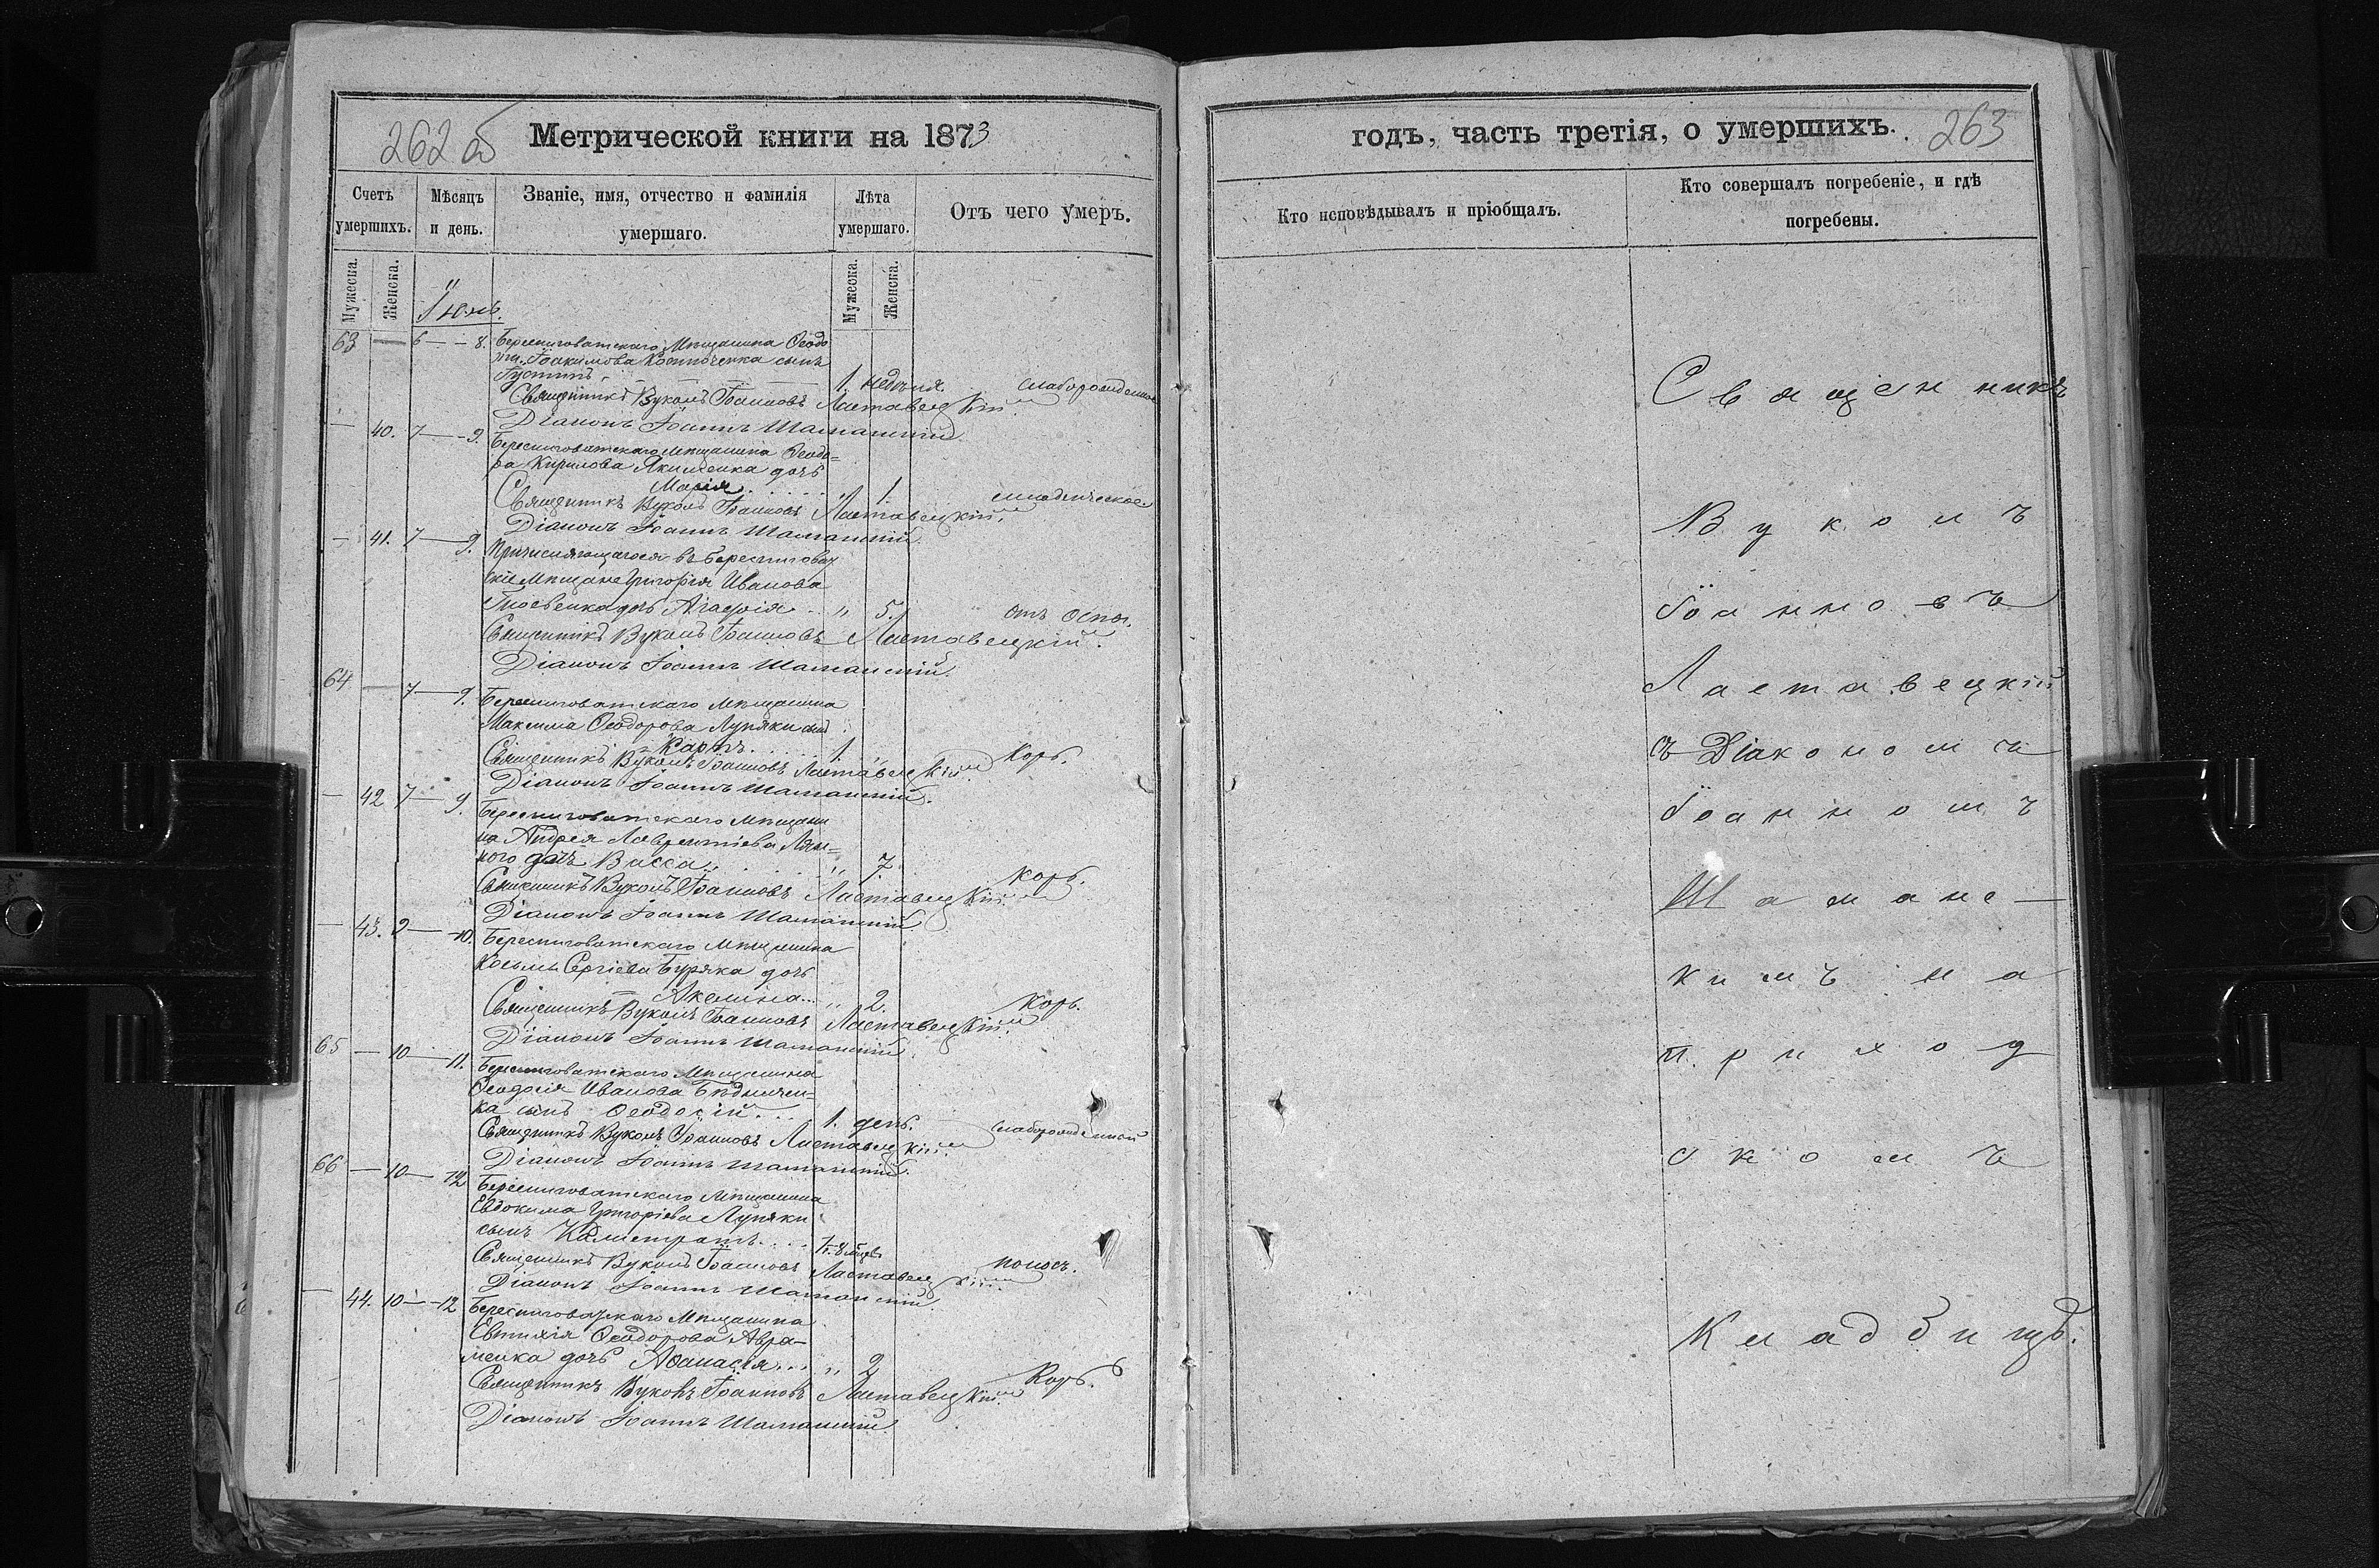 262 об
Метрической книги на 1873
Счетъ умершихъ.
Мѣсяцъ и день.
Званіе, имя, отчество и фамилія умершаго.
Лѣта умершаго.
Отъ чего умеръ.
Мужеска.
Женска.
Мужеска.
Женска.
63 — 6 — 8. Берестоватскаго Мѣщанина Ѳеодо
Іоакимова Костюченка сынъ
Густинъ 1. недѣля. слаборожденное
Священникъ Вуколъ Іоанновъ Ластавецкій.
Діаконъ Іоаннъ Шаманскій.
— 40. 7 — 9. Берестоватскаго Мѣщанина Ѳеодо=
ра Кирилова Якименка дочь
Марія „ 1. младенческое
Священникъ Вуколъ Іоанновъ Ластавецкій.
Діаконъ Іоаннъ Шаманскій.
— 41. 7 — 9. Причисляющагося въ Берестоват
скіе Мѣщане Григорія Иванова
дочь Агафія „ 5. отъ оспы.
Священникъ Вуколъ Іоанновъ Ластавецкій.
Діаконъ Іоаннъ Шаманскій.
64 — 7 — 9. Берестоватскаго Мѣщанина
Максима Ѳеодорова Лупяки сынъ
Карпъ 1. „ Корь.
Священникъ Вуколъ Іоанновъ Ластавецкій.
Діаконъ Іоаннъ Шаманскій.
— 42 7 — 9. Берестоватскаго Мѣщани
на Андрея Лаврентіева Лям=
ного дочь Васса „ 7. корь.
Священникъ Вуколъ Іоанновъ Ластавецкій.
Діаконъ Іоаннъ Шаманскій
— 43. 9 — 10. Берестоватскаго Мѣщанина
Косьмы Сергіева Буряка дочь
Акелина „ 2. корь.
Священникъ Вуколъ Іоанновъ Ластавецкій.
Діаконъ Іоаннъ Шаманскій.
65 — 10 — 11. Берестоватскаго Мѣщанина
Ѳеодосія Иванова Бѣдничен=
ка сынъ Ѳеодосій 1. день. слаборожденный
Священникъ Вуколъ Іоанновъ Ластавецкій.
Діаконъ Іоаннъ Шаманскій.
66 — 10 — 12 Берестоватскаго Мѣщанина
Евдокима Григоріева Лупяки
сынъ Калистратъ поносъ.
Священникъ Вуколъ Іоанновъ Ластавецкій.
Діаконъ Іоаннъ Шаманскій.
— 44. 10 — 12 Берестоватскаго Мѣщанина
Евтихія Ѳеодорова Авра-
менка дочь Аѳанасія „ 2 Корь.
Священникъ Вуколъ Іоанновъ Ластавецкій.
Діаконъ Іоаннъ Шаманскій.
годъ, часть третія, о умершихъ. 263
Кто исповѣдывалъ и пріобщалъ.
Кто совершалъ погребеніе, и гдѣ погребены.
Священникъ
Вуколъ
Іоанновъ
Ластавецкій
съ Діакономъ
Іоанномъ
Шаманс—
кимъ на
приход
скомъ
Кладбищѣ.